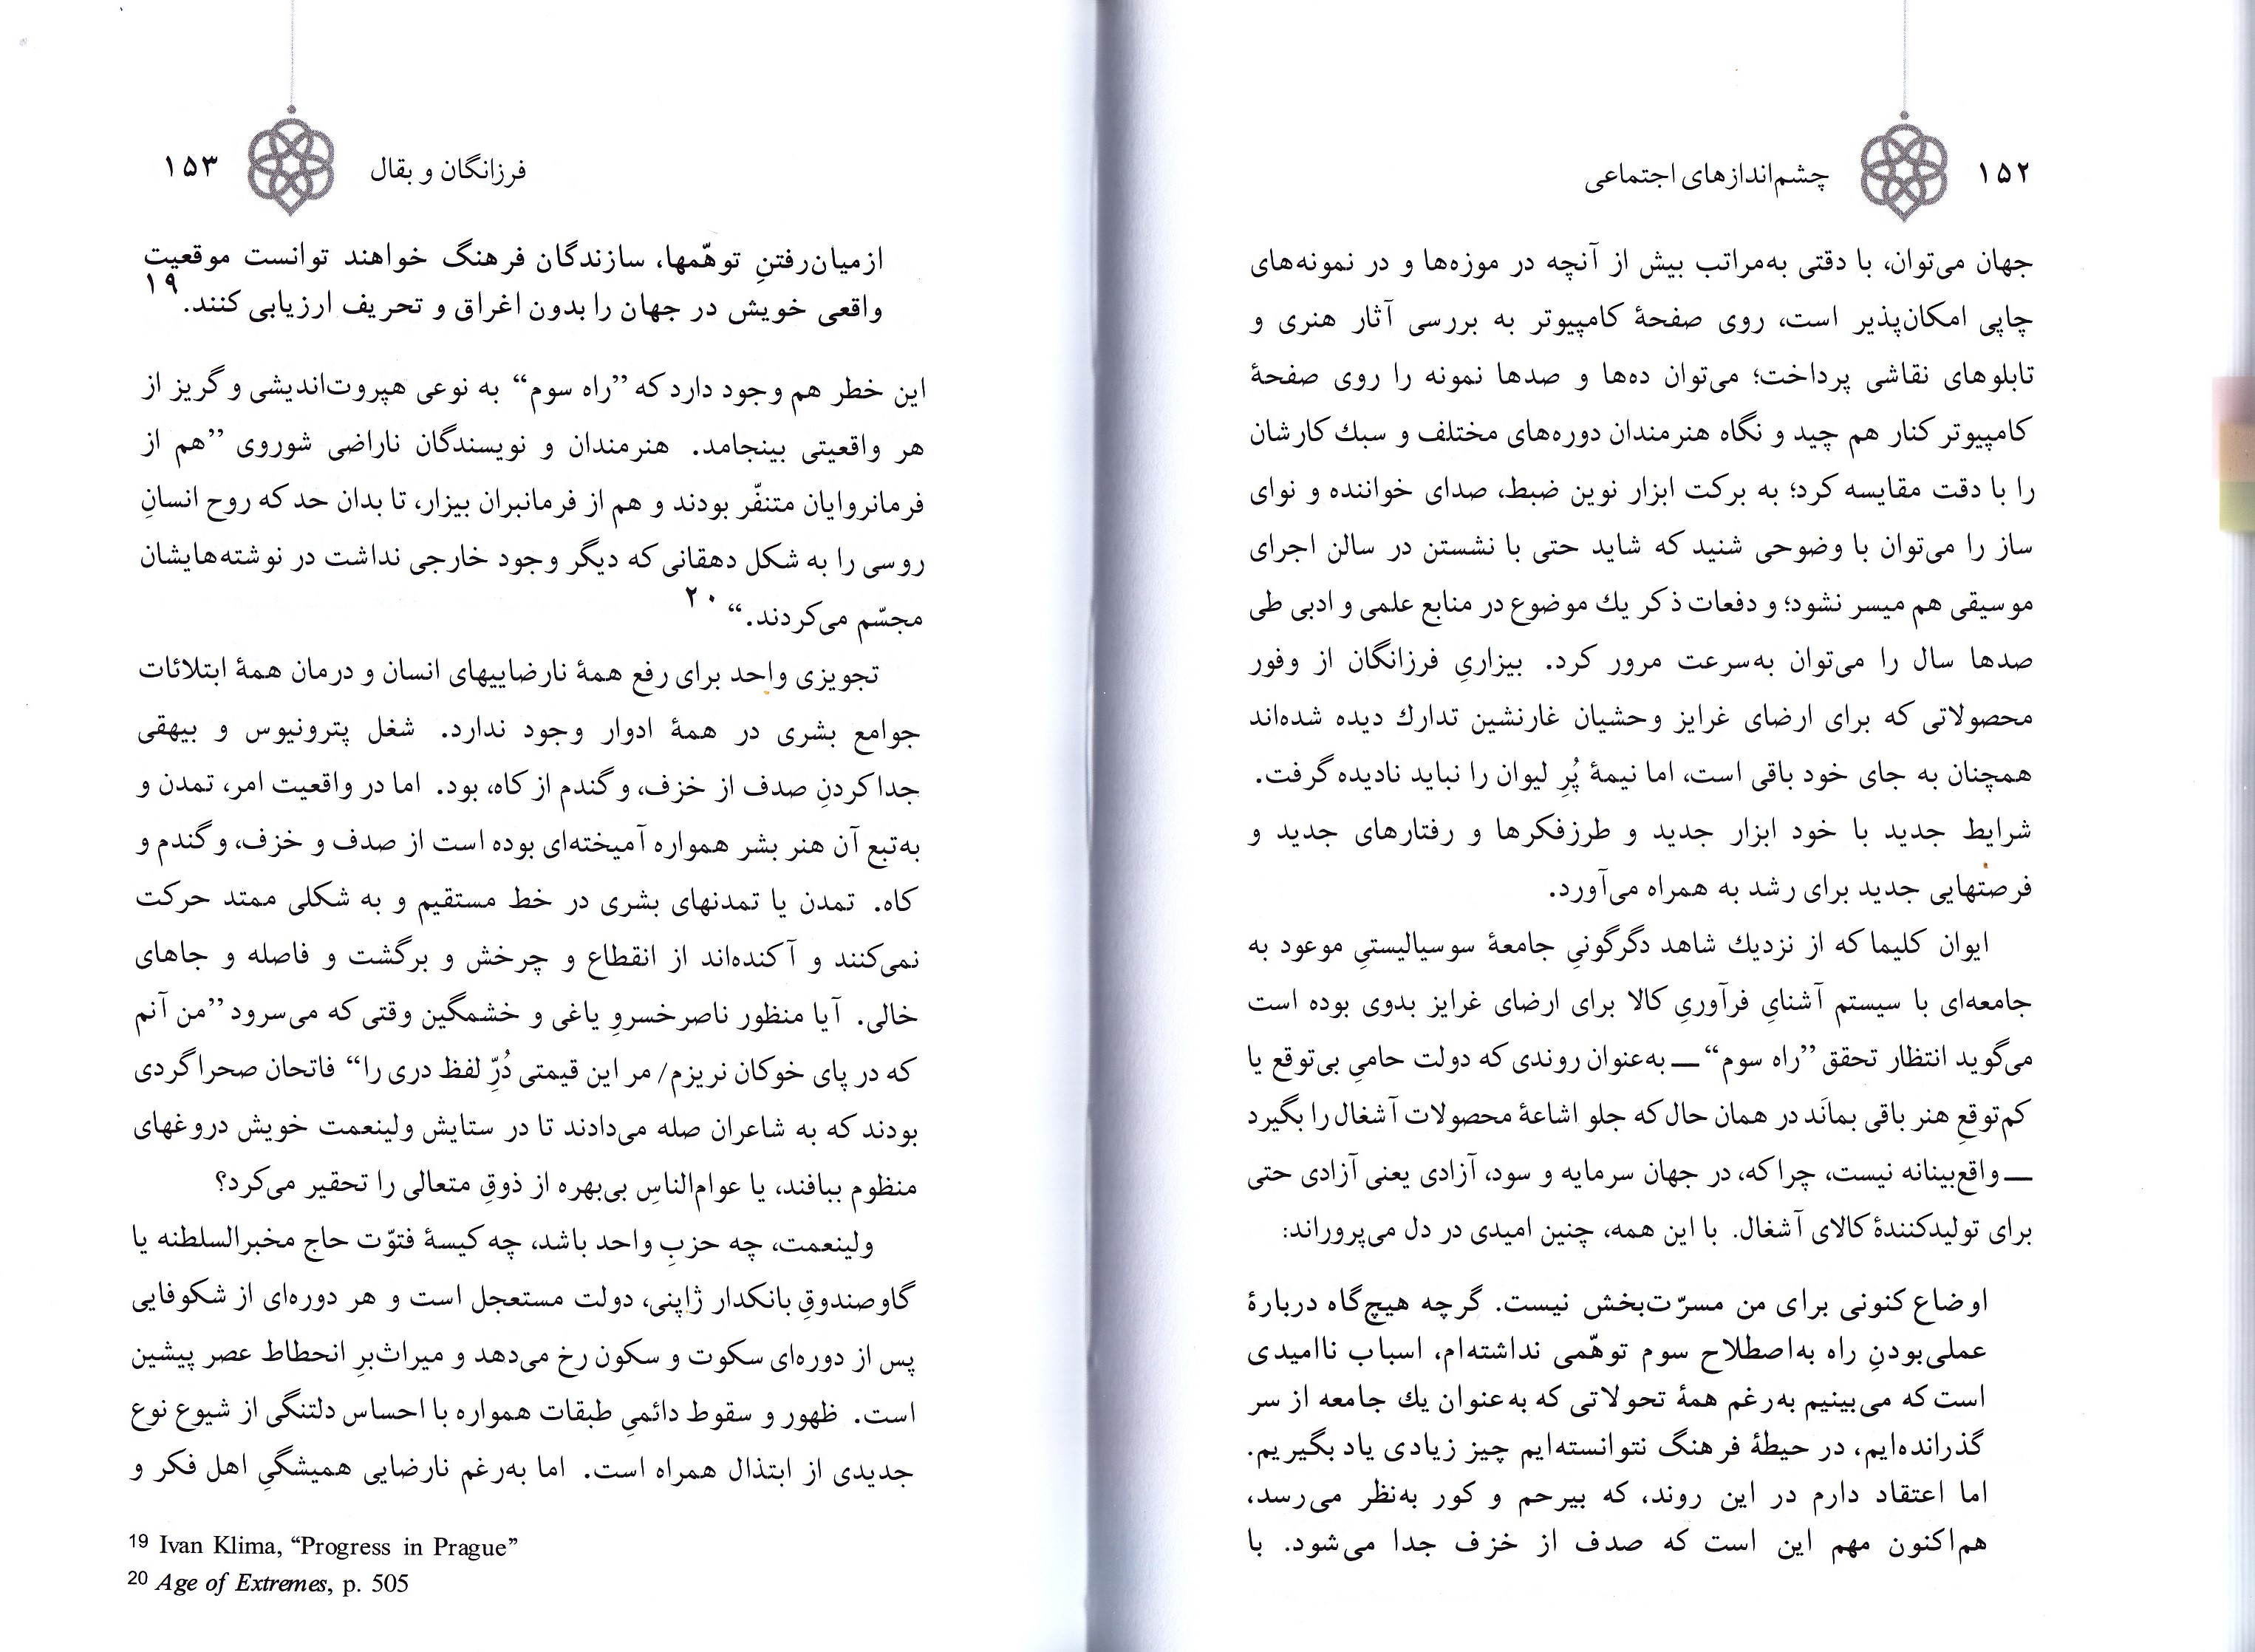 ۱۵۲ چشم‌اندازهای اجتماعی
جهان می‌توان، با دقتی به‌مراتب بیش از آنچه در موزه‌ها و در نمونه‌های
چاپی امکان‌پذیر است، روی صفحهٔ کامپیوتر به بررسی آثار هنری و
تابلوهای نقاشی پرداخت؛ می‌توان ده‌ها و صدها نمونه را روی صفحهٔ
کامپیوتر کنار هم چید و نگاه هنرمندان دوره‌های مختلف و سبك کارشان
را با دقت مقایسه کرد؛ به برکت ابزار نوین ضبط، صدای خواننده و نوای
ساز را می‌توان با وضوحی شنید که شاید حتی با نشستن در سالن اجرای
موسیقی هم میسر نشود؛ و دفعات ذکر یك موضوع در منابع علمی و ادبی طی
صدها سال را می‌توان به‌سرعت مرور کرد. بیزاریِ فرزانگان از وفور
محصولاتی که برای ارضای غرایز وحشیان غارنشین تدارك دیده شده‌اند
همچنان به جای خود باقی است، اما نیمهٔ پُرِ لیوان را نباید نادیده گرفت.
شرایط جدید با خود ابزار جدید و طرزفکرها و رفتارهای جدید و
فرصتهایی جدید برای رشد به همراه می‌آورد.
ایوان کلیما که از نزدیك شاهد دگرگونیِ جامعهٔ سوسیالیستیِ موعود به
جامعه‌ای با سیستم آشنایِ فرآوریِ کالا برای ارضای غرایز بدوی بوده است
می‌گوید انتظار تحقق ”راه سوم“ ــ به‌عنوان روندی که دولت حامیِ بی‌توقع یا
کم‌توقعِ هنر باقی بمانَد در همان حال که جلو اشاعهٔ محصولات آشغال را بگیرد
ــ واقع‌بینانه نیست، چرا که، در جهان سرمایه و سود، آزادی یعنی آزادی حتی
برای تولیدکنندهٔ کالای آشغال. با این همه، چنین امیدی در دل می‌پروراند:
اوضاع کنونی برای من مسرّت‌بخش نیست. گرچه هیچ‌گاه دربارهٔ
عملی‌بودنِ راه به‌اصطلاح سوم توهّمی نداشته‌ام، اسباب ناامیدی
است که می‌بینیم به‌رغم همهٔ تحولاتی که به‌عنوان یك جامعه از سر
گذرانده‌ایم، در حیطهٔ فرهنگ نتوانسته‌ایم چیز زیادی یاد بگیریم.
اما اعتقاد دارم در این روند، که بیرحم و کور به‌نظر می‌رسد،
هم‌اکنون مهم این است که صدف از خزف جدا می‌شود. با
فرزانگان و بقال ۱۵۳
ازمیان‌رفتنِ توهّمها، سازندگان فرهنگ خواهند توانست موقعیت
واقعی خویش در جهان را بدون اغراق و تحریف ارزیابی کنند.۱۹
این خطر هم وجود دارد که ”راه سوم“ به نوعی هپروت‌اندیشی و گریز از
هر واقعیتی بینجامد. هنرمندان و نویسندگان ناراضی شوروی ”هم از
فرمانروایان متنفّر بودند و هم از فرمانبران بیزار، تا بدان حد که روح انسانِ
روسی را به شکل دهقانی که دیگر وجود خارجی نداشت در نوشته‌هایشان
مجسّم می‌کردند.“ ۲۰
تجویزی واحد برای رفع همهٔ نارضاییهای انسان و درمان همهٔ ابتلائات
جوامع بشری در همهٔ ادوار وجود ندارد. شغل پترونیوس و بیهقی
جداکردنِ صدف از خزف، و گندم از کاه، بود. اما در واقعیت امر، تمدن و
به‌تبع آن هنر بشر همواره آمیخته‌ای بوده است از صدف و خزف، و گندم و
کاه. تمدن یا تمدنهای بشری در خط مستقیم و به شکلی ممتد حرکت
نمی‌کنند و آکنده‌اند از انقطاع و چرخش و برگشت و فاصله و جاهای
خالی. آیا منظور ناصرخسروِ یاغی و خشمگین وقتی که می‌سرود ”من آنم
که در پای خوکان نریزم/ مر این قیمتی دُرِّ لفظ دری را“ فاتحان صحراگردی
بودند که به شاعران صله می‌دادند تا در ستایش ولینعمت خویش دروغهای
منظوم ببافند، یا عوام‌الناسِ بی‌بهره از ذوقِ متعالی را تحقیر می‌کرد؟
ولینعمت، چه حزبِ واحد باشد، چه کیسهٔ فتوّت حاج مخبرالسلطنه یا
گاوصندوقِ بانکدار ژاپنی، دولت مستعجل است و هر دوره‌ای از شکوفایی
پس از دوره‌ای سکوت و سکون رخ می‌دهد و میراث‌برِ انحطاط عصر پیشین
است. ظهور و سقوط دائمیِ طبقات همواره با احساس دلتنگی از شیوع نوع
جدیدی از ابتذال همراه است. اما به‌رغم نارضایی همیشگیِ اهل فکر و
19 Ivan Klima, “Progress in Prague”
20 Age of Extremes, p. 505